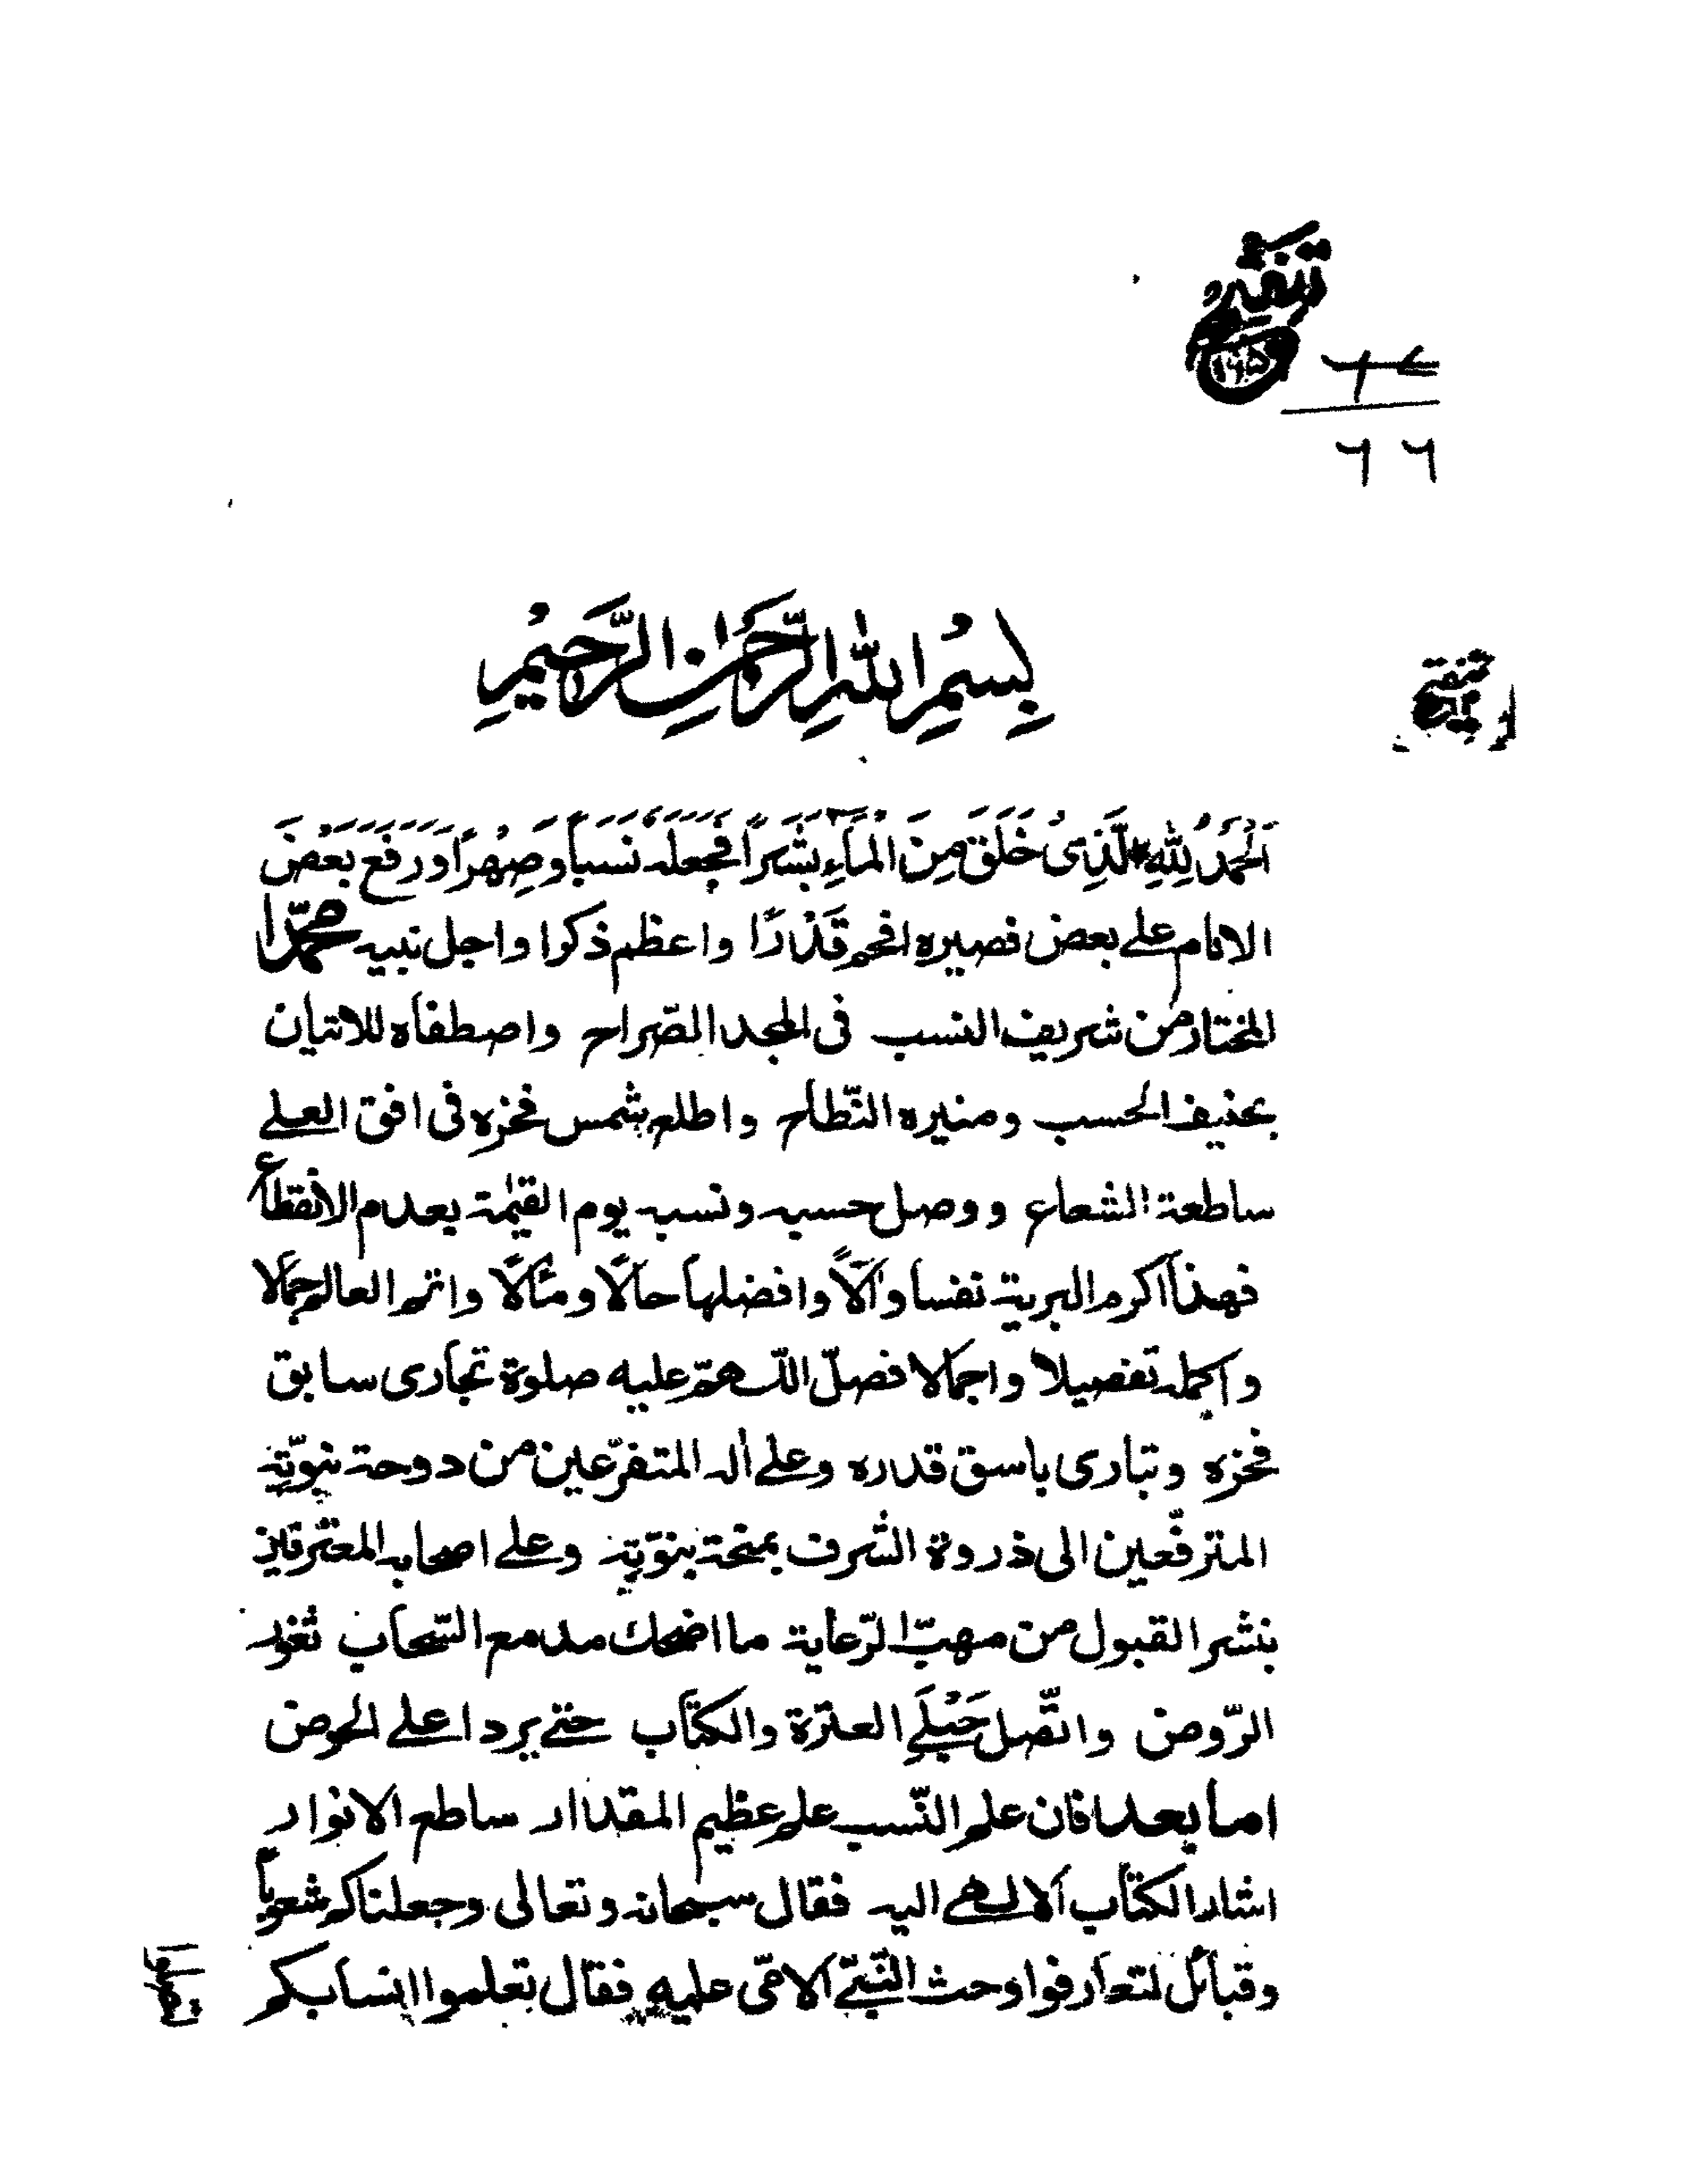 ٦٦
بِسْمِ اللهِ الرَّحْمٰنِ الرَّحِيْمِ
اَلْحَمْدُ لِلّٰهِ الَّذِىْ خَلَقَ مِنَ الْمَآءِ بَشَرًا فَجَعَلَهٗ نَسَبًا وَصِهْرًا وَرَفَعَ بَعْضَ
الانام على بعض فصيره افخم قَدْرًا واعظم ذكرا واجل نبيه محمّدا
المختار من شريف النسب فى المجد الصّراح واصطفاه للاتيان
بمنيف الحسب ومنيره النّطاح واطلع شمس فخره فى افق العلى
ساطعة الشعاع ووصل حسبه ونسبه يوم القيٰمة بعدم الانقطاع
فهذا اكرم البرية نفسا واٰلًا وافضلها حالًا ومآلًا واتم العالم جمالا
واكمله تفصيلا واجمالا فصلّ اللّٰهمّ عليه صلوة تجارى سابق
فخره وتبارى باسق قدره وعلى اٰله المتفرّعين من دوحة نبوّته
المترفّعين الى ذروة الشرف بمنحة بنوّته وعلى اصحابه المعترفين
بنشر القبول من مهبّ الرّعاية ما اضحك مدمع السّحاب ثغور
الرّوض واتّصل حَبْلَىِ العترة والكتاب حتى يردا على الحوض
اما بعد فان علم النّسب علم عظيم المقدار ساطع الانوار
اشار الكتاب الالٰهى اليه فقال سبحانه وتعالى وجعلناكم شعوباً
وقبائل لتعارفوا وحث النّبىّ الامّى عليه فقال تعلموا انسابكم
تصلوا